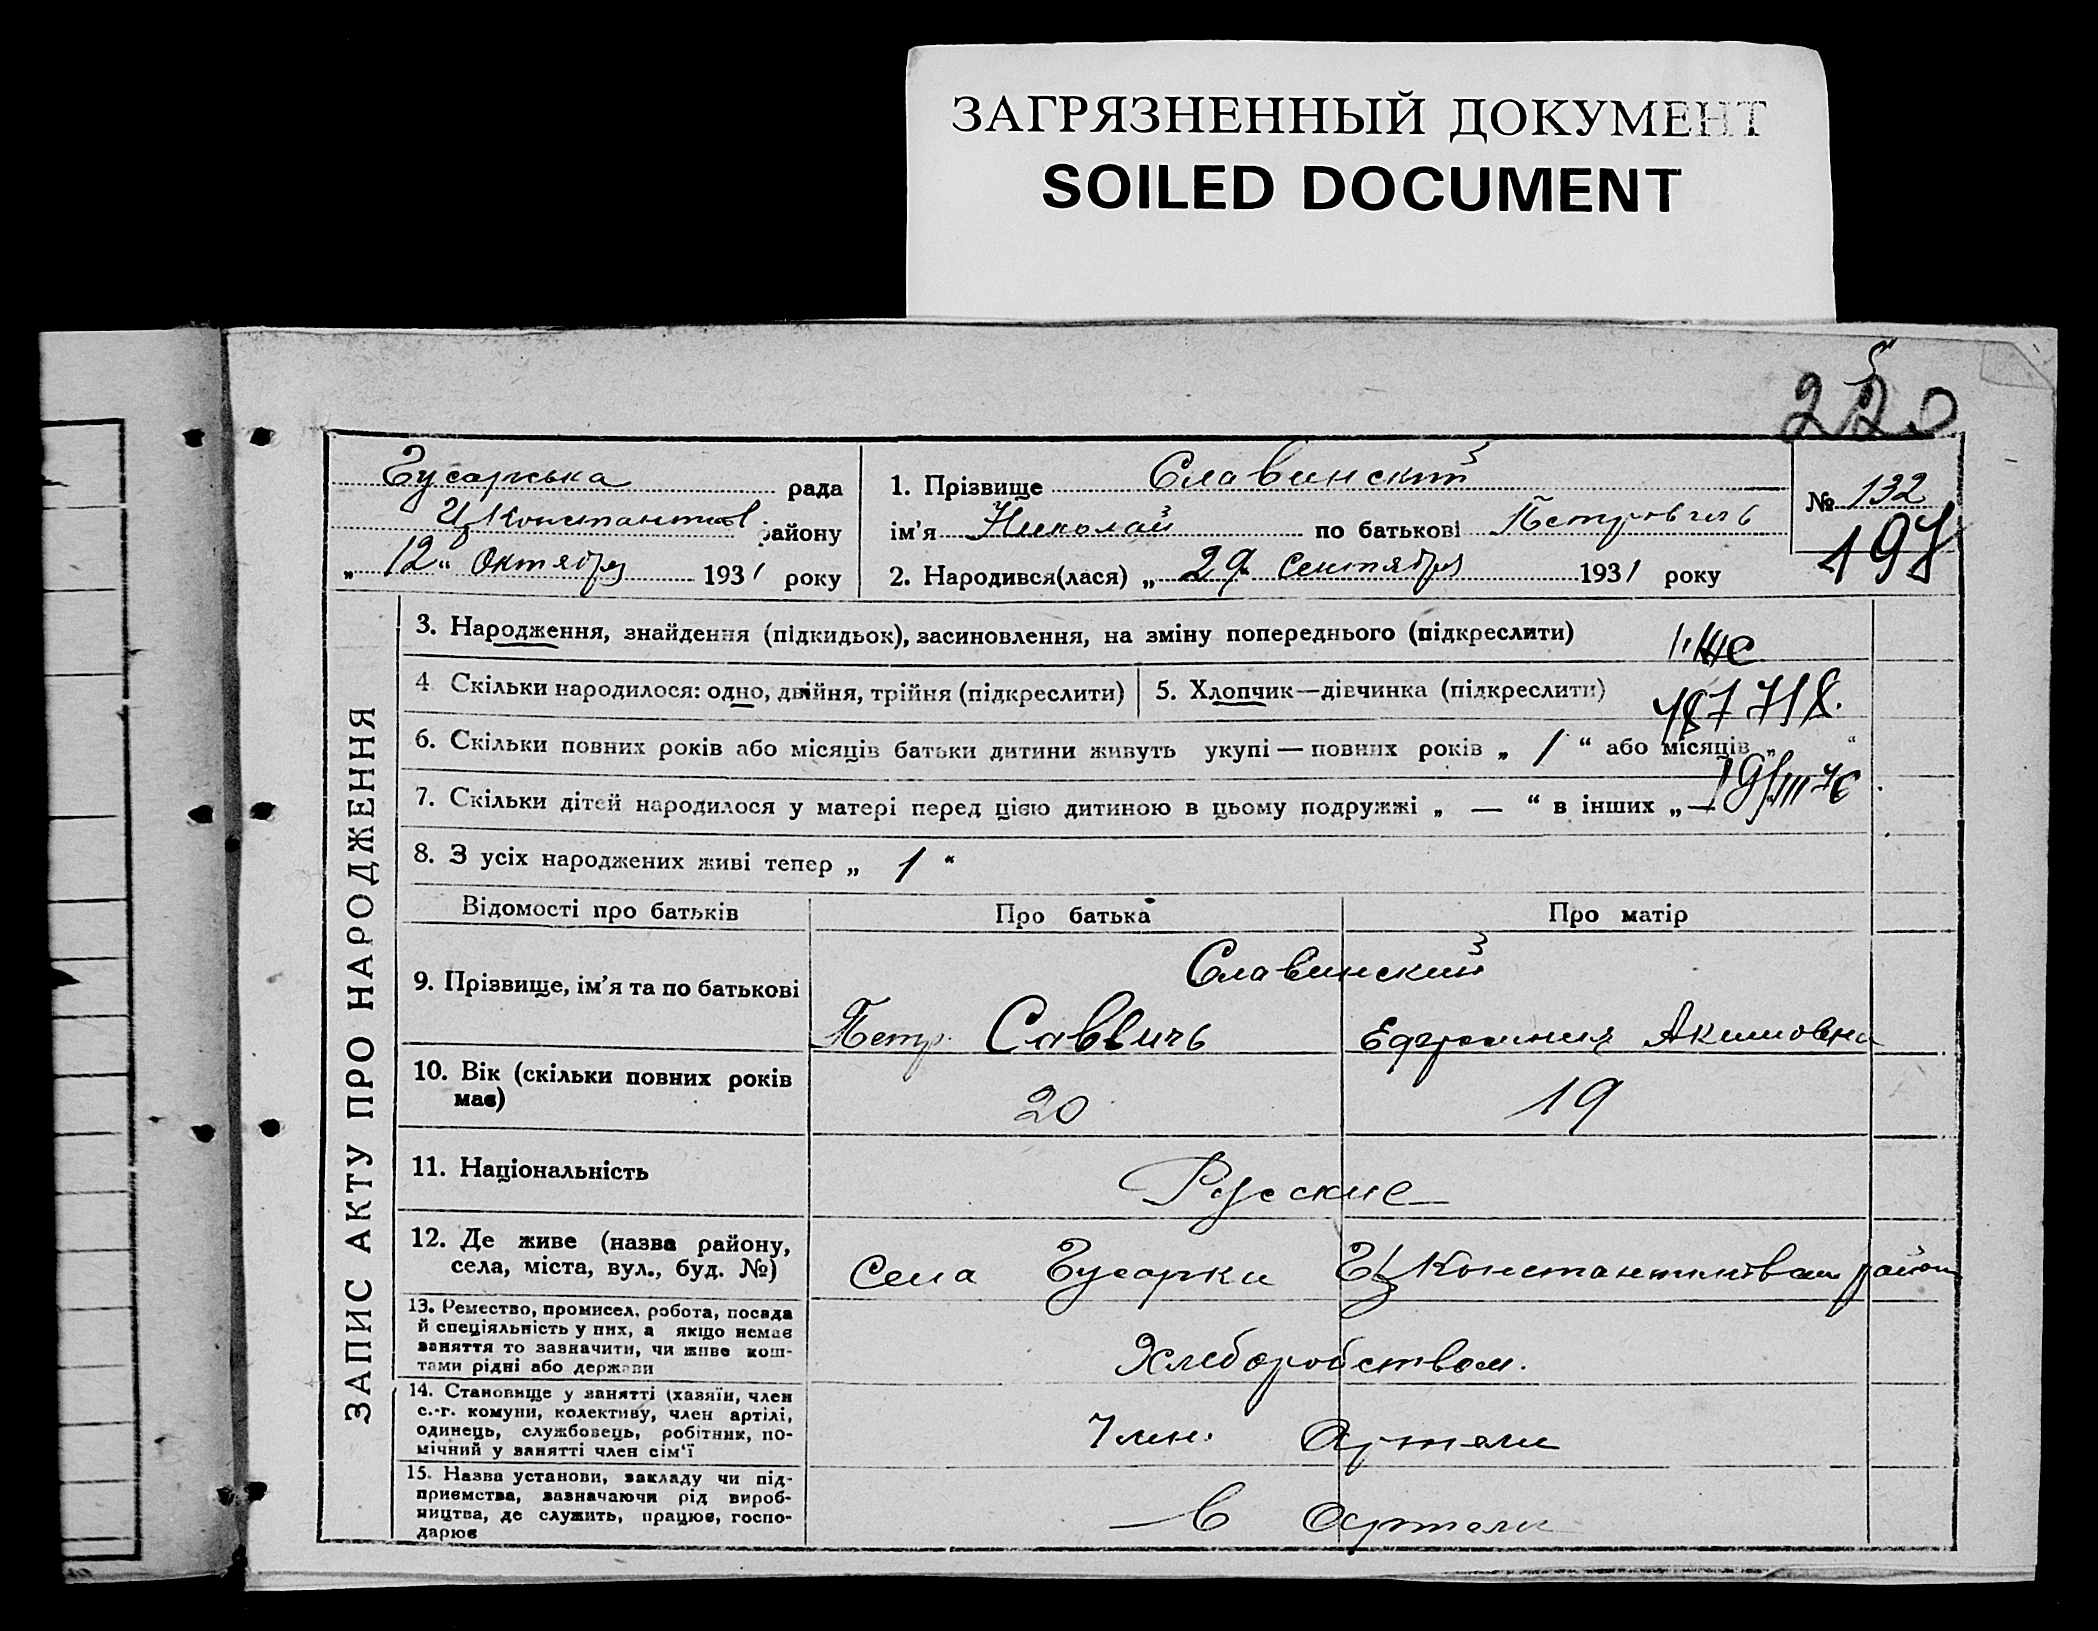 ЗАГРЯЗНЕННЫЙ ДОКУМЕНТ
SOILED DOCUMENT
250
Гусарська рада
Ц Константинов району
„ 12 “ Октября 1931 року
1. Прізвище Славинский
ім'я Николай по батькові Петровичь
2. Народився(лася) „ 29 Сентября 1931 року
№ 132
197
ЗАПИС АКТУ ПРО НАРОДЖЕННЯ
3. Народження, знайдення (підкидьок), засиновлення, на зміну попереднього (підкреслити)
4 Скільки народилося: одно, двійня, трійня (підкреслити)
5. Хлопчик—дівчинка (підкреслити)
6. Скільки повних років або місяців батьки дитини живуть укупі — повних років „ 1 “ або місяців „ “
7. Скільки дітей народилося у матері перед цією дитиною в цьому подружжі „ — “ в інших „ —
8. З усіх народжених живі тепер „ 1 “
Відомості про батьків Про батька Про матір
9. Прізвище, ім'я та по батькові
Славинский
Петр Саввичь Ефросиния Акимовна
10. Вік (скільки повних років має)
20 19
11. Національність
Русские
12. Де живе (назва району,
села, міста, вул., буд. №)
Села Гусарки Ц Константиновки район
13. Ремество, промисел, робота, посада
й спеціяльність у них, а якщо немає
заняття то зазначити, чи живе кош-
тами рідні або держави
Хлеборобством.
14. Становище у занятті (хазяїн, член
с.-г. комуни, колективу, член артілі,
одинець, службовець, робітник, по-
мічний у занятті член сім'ї
Член. Артели
15. Назва установи, закладу чи під-
приємства, зазначаючи рід вироб-
ництва, де служить, працює, госпо-
дарює
В Артели